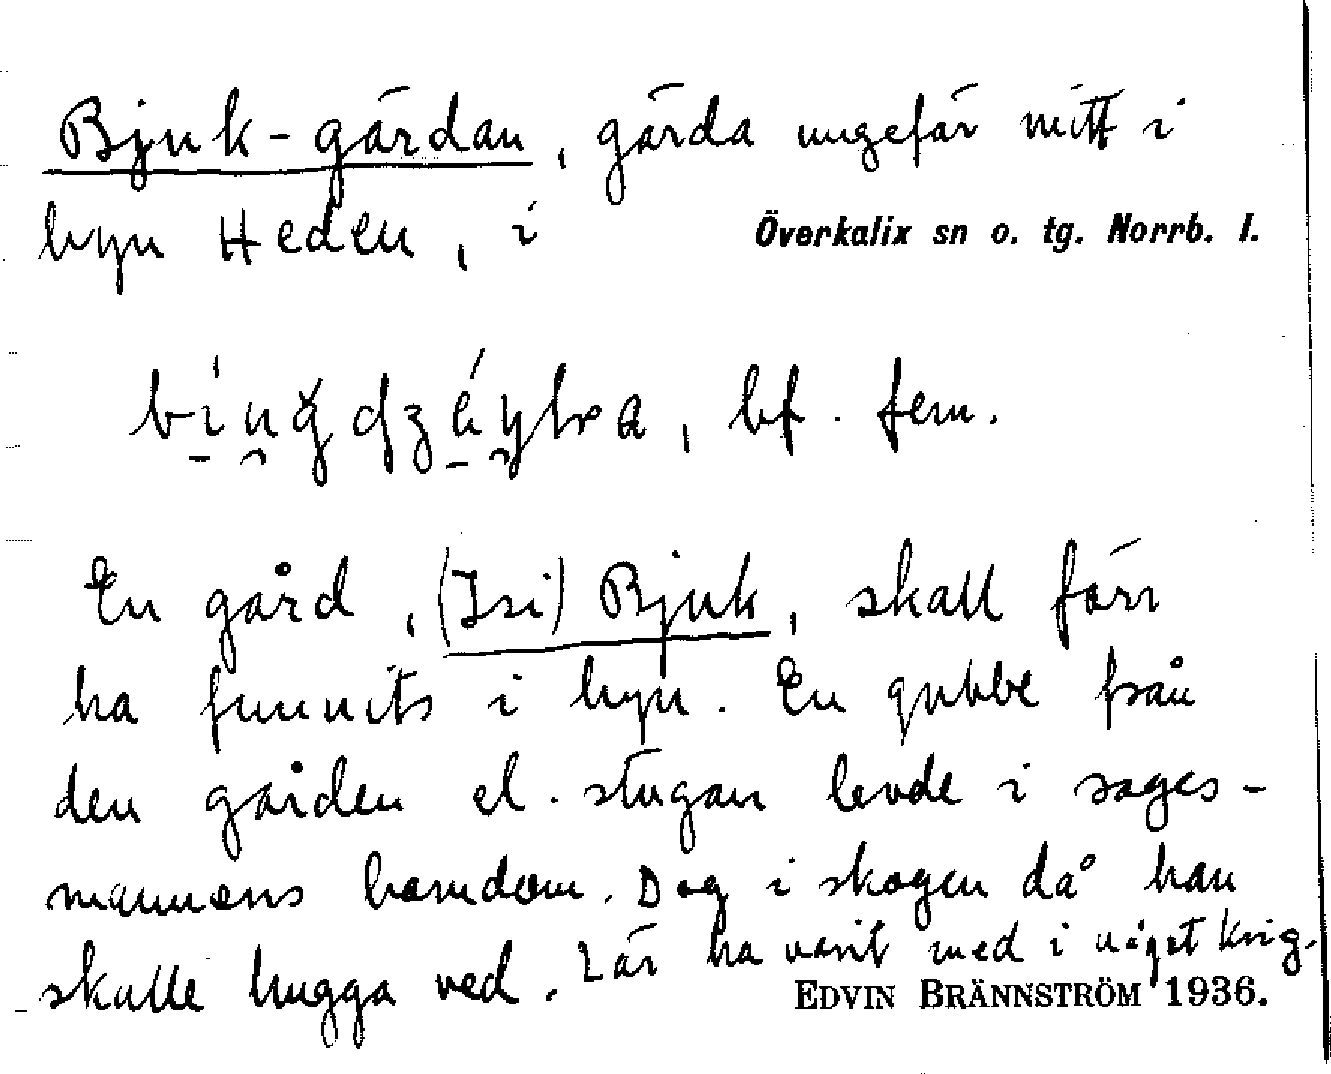 Bjuk-gärdan, gärda ungefär mitt i
byn Heden, i Överkalix sn o. tg. Norrb. l.
bf. fem.
En gård, (Isi) Bjuk, skall förr
ha funnits i byn. En gubbe från
den gården el. stugan levde i sages-
mannens barndom. Dog i skogen då han
skulle hugga ved. Lär ha varit med i något krig.
EDVIN BRÄNNSTRÖM 1936.